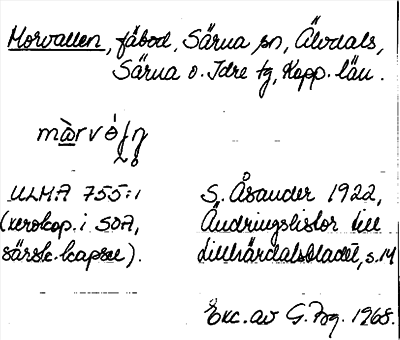 Morvallen, fäbod, Särna sn, Älvdals,
Särna o. Idre tg, Kopp. län.
ULMA 755:1
(xerokop. i SOA,
särsk. kapsel).
S. Åsander 1922,
Ändringslistor till
Lillhärdalsbladet, s. 14
Exc. av G. Brg. 1968.